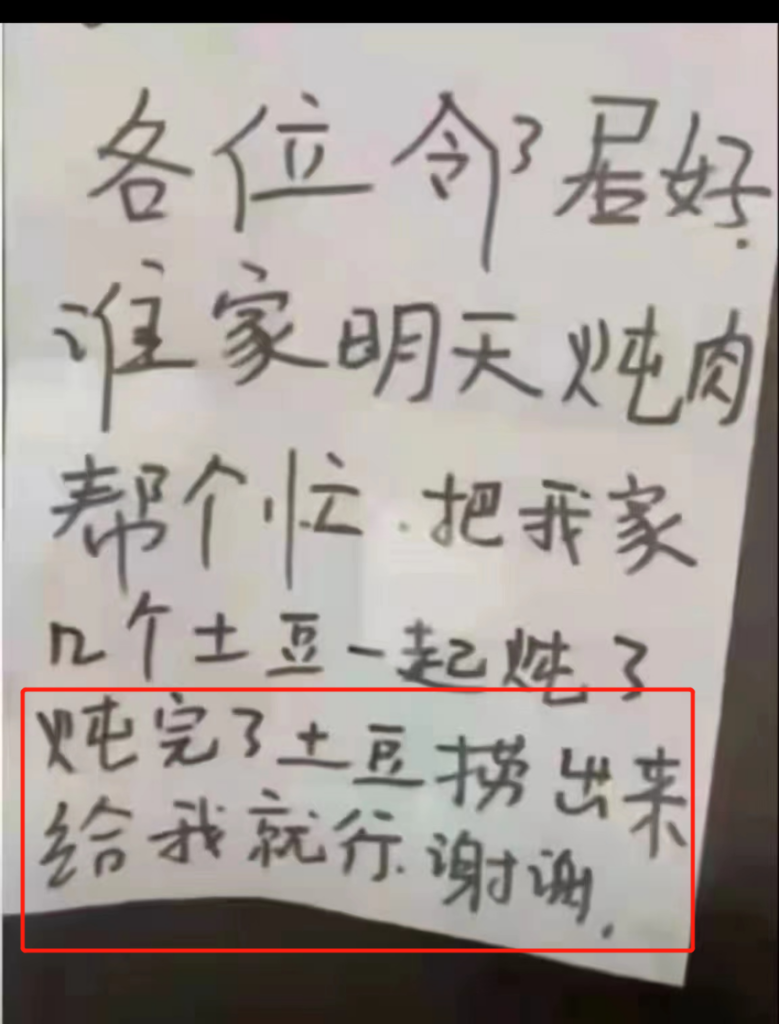 各位邻居好.
谁家明天炖肉
帮个忙.把我家
几个土豆一起炖了
炖完了土豆捞出来
给我就行.谢谢.